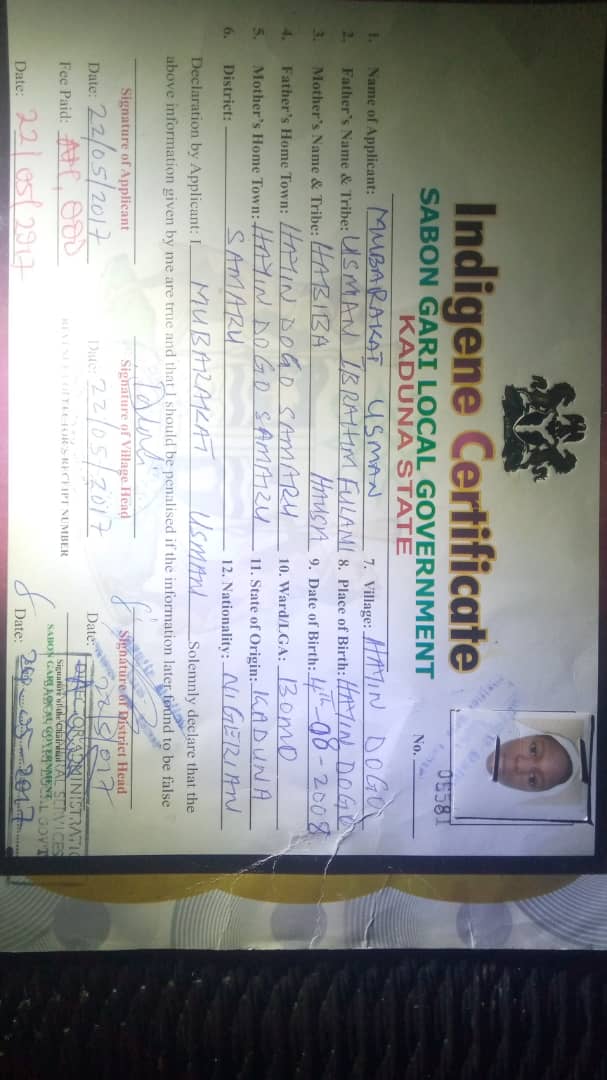 Indigene Certificate
SABON GARI LOCAL GOVERNMENT
KADUNA STATE
No. 05581
1. Name of Applicant: MUBARAKAT USMAN
2. Father's Name & Tribe: USMAN IBRAHIM FULANI
3. Mother's Name & Tribe: HABIBA HAUSA
4. Father's Home Town: HAYIN DOGO SAMARU
5. Mother's Home Town: HAYIN DOGO SAMARU
6. District: SAMARU
7. Village: HAYIN DOGO
8. Place of Birth: HAYIN DOGO
9. Date of Birth: 4TH-08-2008
10. Ward/LGA: BOMO
11. State of Origin: KADUNA
12. Nationality: NIGERIAN
Declaration by Applicant: I MUBARAKAT USMAN Solemnly declare that the
above information given by me are true and that I should be penalised if the information later found to be false
Signature of Applicant Signature of Village Head Signature of District Head
Date: 22/05/2017 Date: 22/05/2017 Date: 22/5/017
Fee Paid: REVENUE COLLECTOR'S RECEIPT NUMBER
SABON GARI LOCAL GOVERNMENT
Date: 22/05/2017 Date: